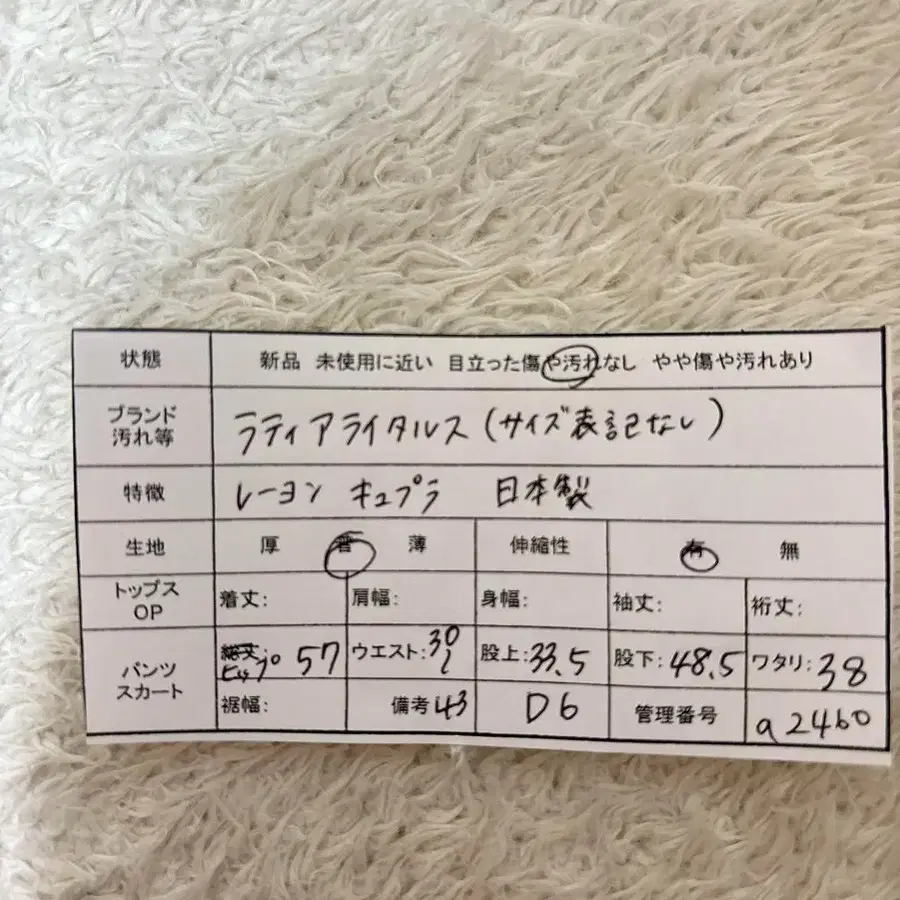 状態 新品 未使用に近い 目立った傷や汚れなし やや傷や汚れあり
ブランド
汚れ等 ラティアライタルス(サイズ表記なし)
特徴 レーヨン キュプラ 日本製
生地 厚 普 薄 伸縮性 有 無
トップス
OP 着丈: 肩幅: 身幅: 袖丈: 裄丈:
パンツ
スカート 総丈: ヒップ 57 ウエスト: 30 股上: 33.5 股下: 48.5 ワタリ: 38
裾幅: 備考 43 D6 管理番号 a2460